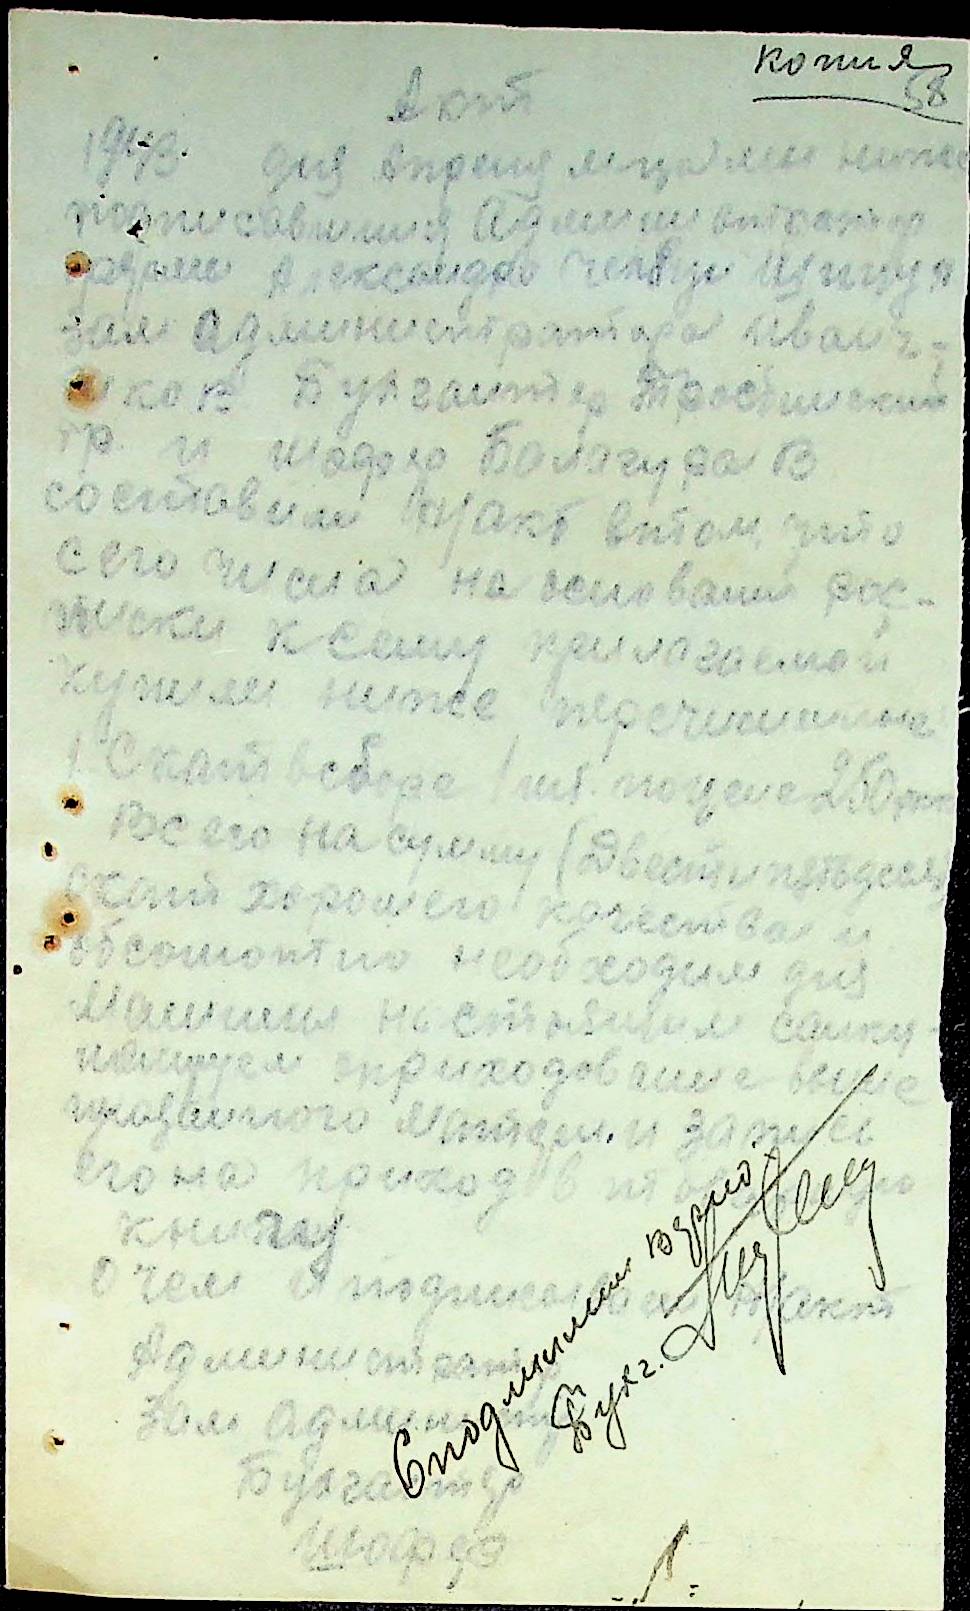 Копия
58
Акт
1943 дня Апреля м-ца мы ниже
подписавшиися Администратор
Александр
зам Администратора Иванч-
иков Бухгалтер
гр. и шофер Балагура В
составили н/акт втом, что
сего числа на основании рос-
писки к сему прилагаемой
купили ниже перечисленное
1. Скат всборе 1 шт. по цене 250
Всего на сумму (Двести пятьдесят
скат хорошего качества и
абсолютно необходим для
Машины настоящим
оприходование выше
указанного Матер. и запись
его на приход в
книгу
О чем и подписали н/акт
Администратор
Зам Админист
Бухгалтер
Шофер
Сподлиным верно
Бухг.